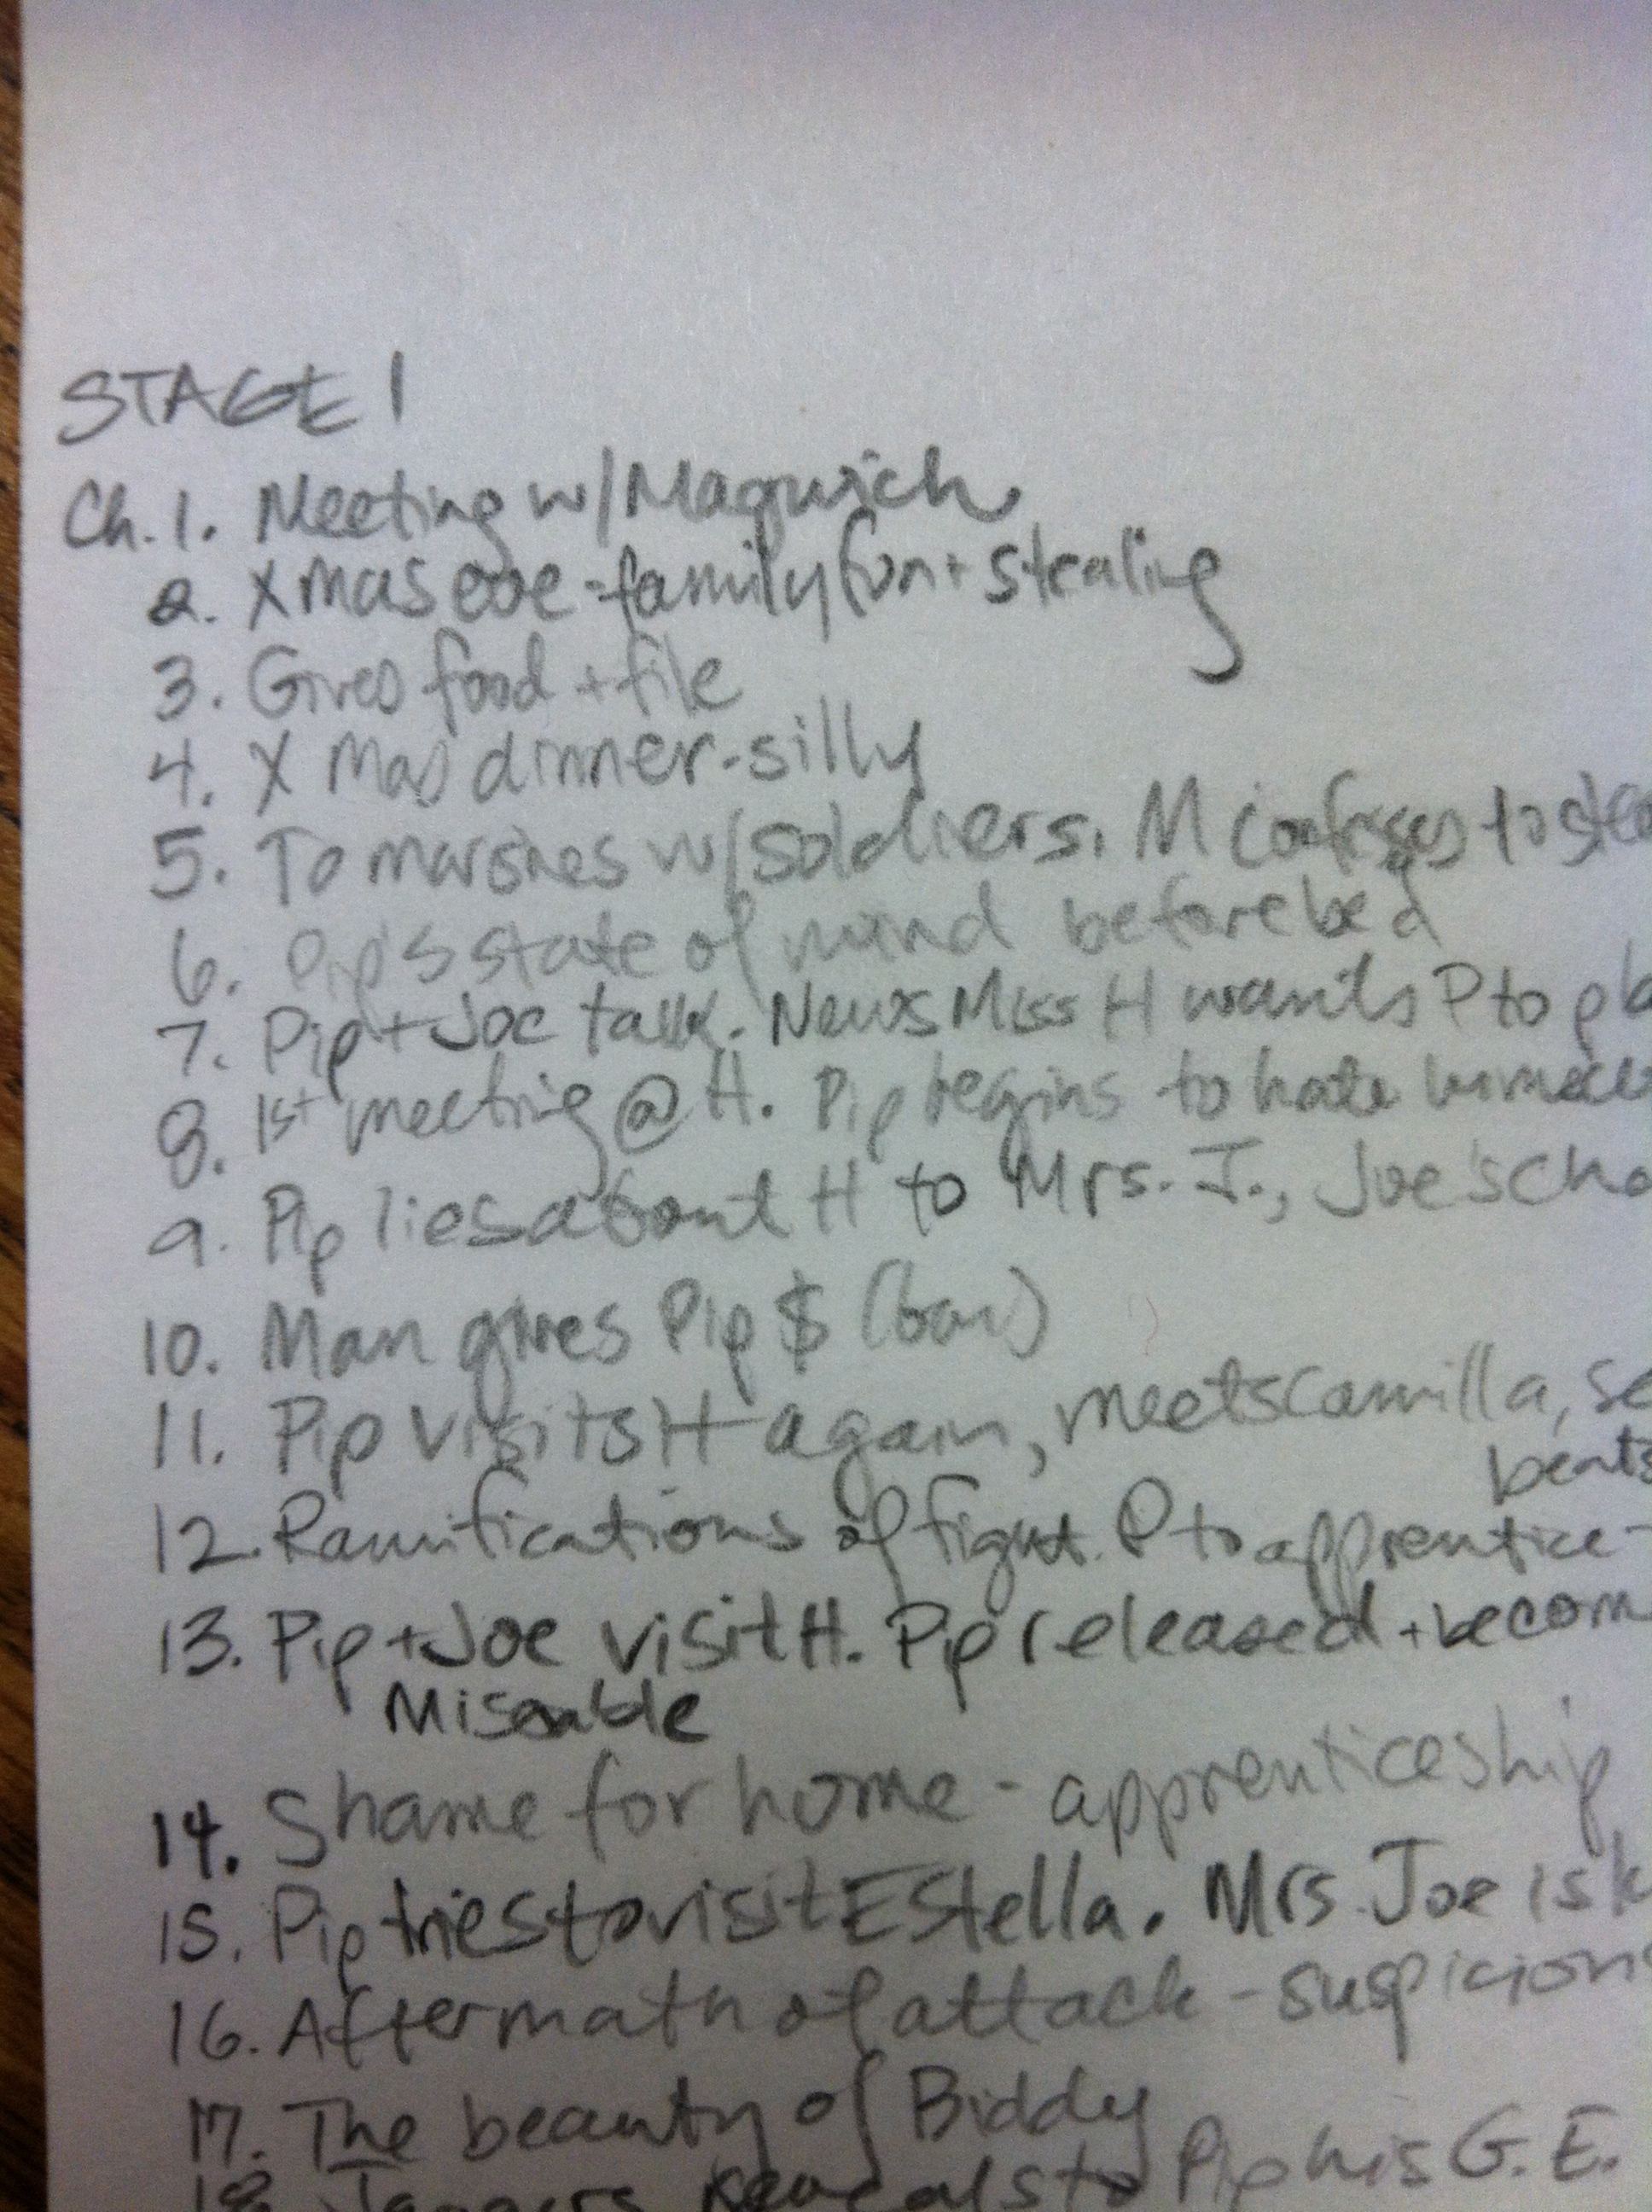 STAGE 1
Ch. 1. Meeting w/Magwich
2. Xmas eve - family fun + stealing
3. Gives food + file
4. X Mas dinner - silly
5. To marshes w/soldiers. M confesses to
6. Pip's state of mind before bed
7. Pip + Joe talk. News Miss H wants P to
8. 1st meeting @ H. Pip begins to hate
9. Pip lies about H to Mrs. J., Joe's
10. Man gives Pip $ (bar)
11. Pip visits H again, meets Camilla,
beats
12. Ramifications of fight. P to apprentice -
13. Pip + Joe visit H. Pip released + becom
Miserable
14. Shame for home - apprenticeship
15. Pip tries to visit Estella. Mrs Joe is
16. Aftermath of attack - suspicion
17. The beauty of Biddy
18. Jaggers reveals to Pip his G.E.